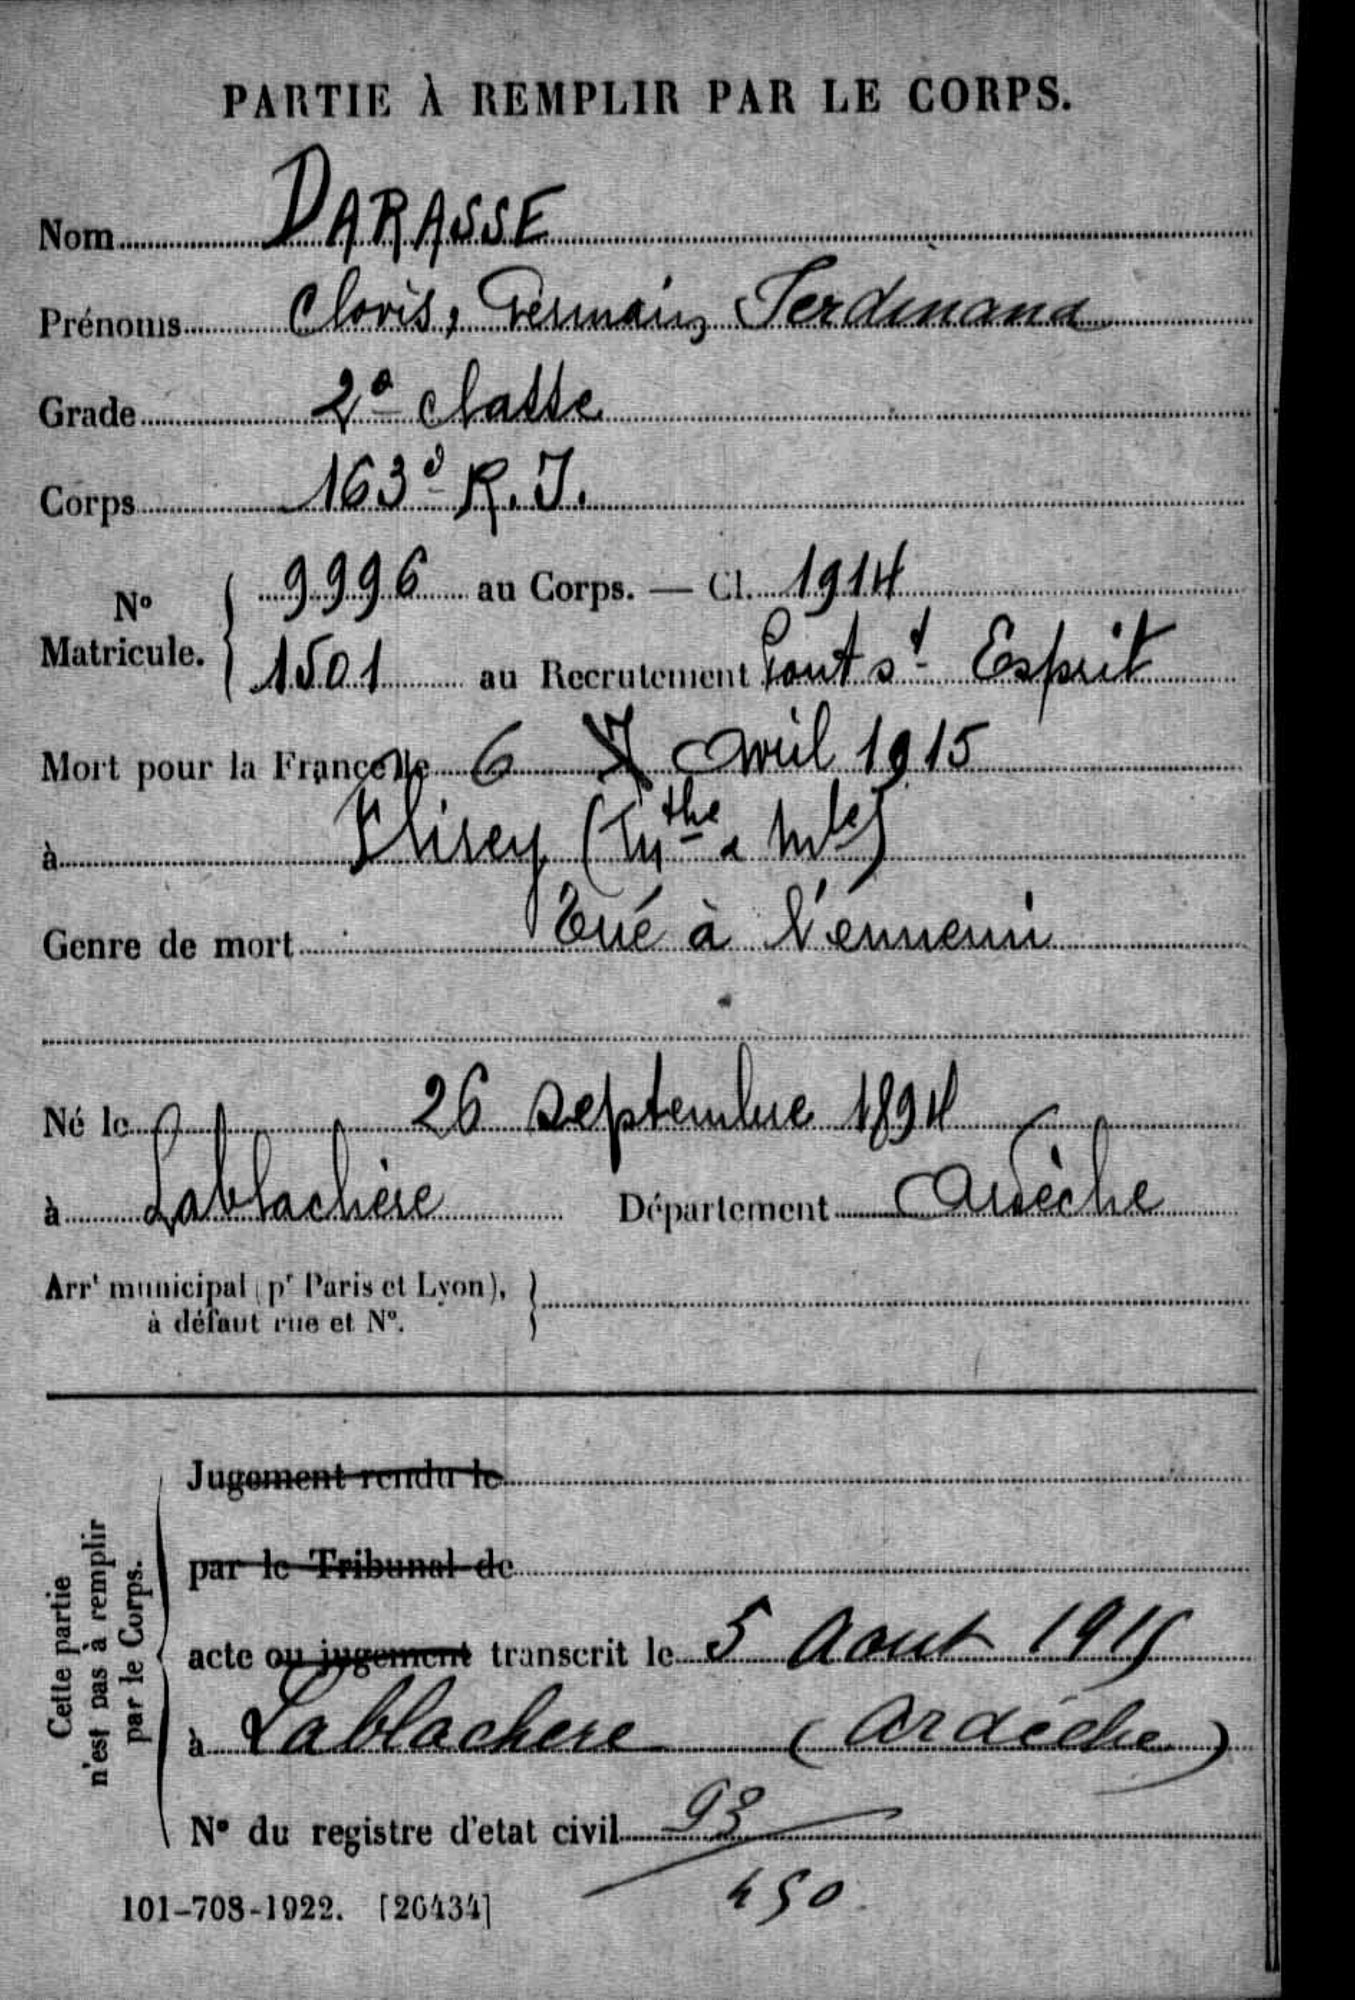 PARTIE À REMPLIR PAR LE CORPS.
Nom DARASSE
Prénoms Clovis, Germain, Ferdinand
Grade 2e classe
Corps 163e R.I.
No Matricule. 9996 au Corps. — Cl. 1914
1501 au Recrutement Pont St Esprit
Mort pour la France le 6 7 Avril 1915
à Flirey (Mthe & Mle)
Genre de mort Tué à l'ennemi
Né le 26 septembre 1894
à Lablachère Département Ardèche
Arrt municipal (pr Paris et Lyon),
à défaut rue et No.
Cette partie
n'est pas à remplir
par le Corps.
Jugement rendu le
par le Tribunal de
acte ou jugement transcrit le 5 Aout 1915
à Lablachere (Ardèche)
No du registre d'etat civil 93
450
101-708-1922. [26434]